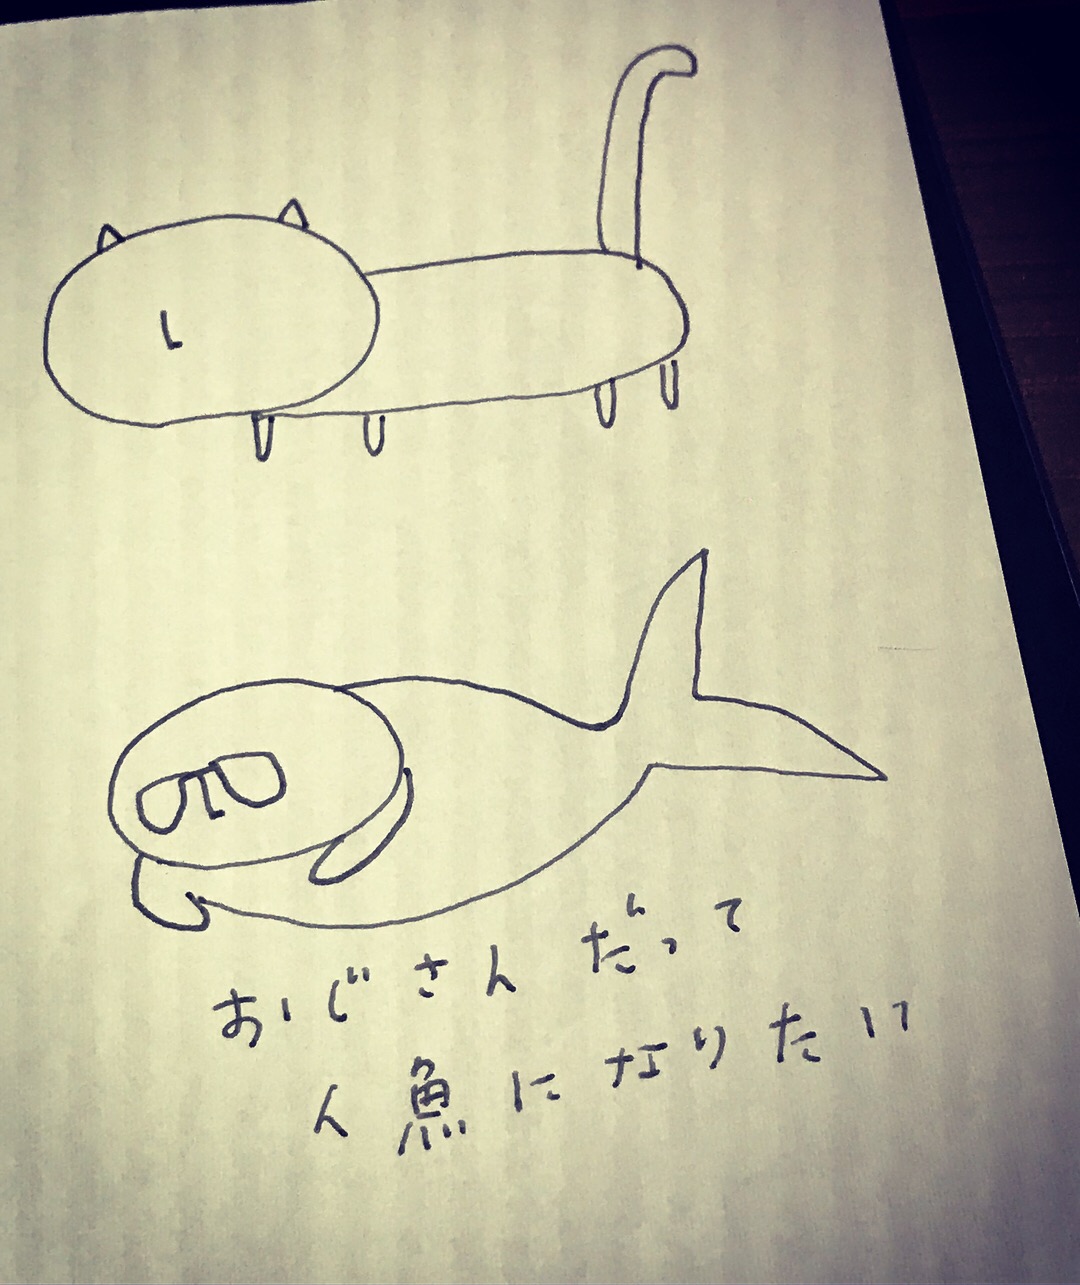 おじさんだって
人魚になりたい